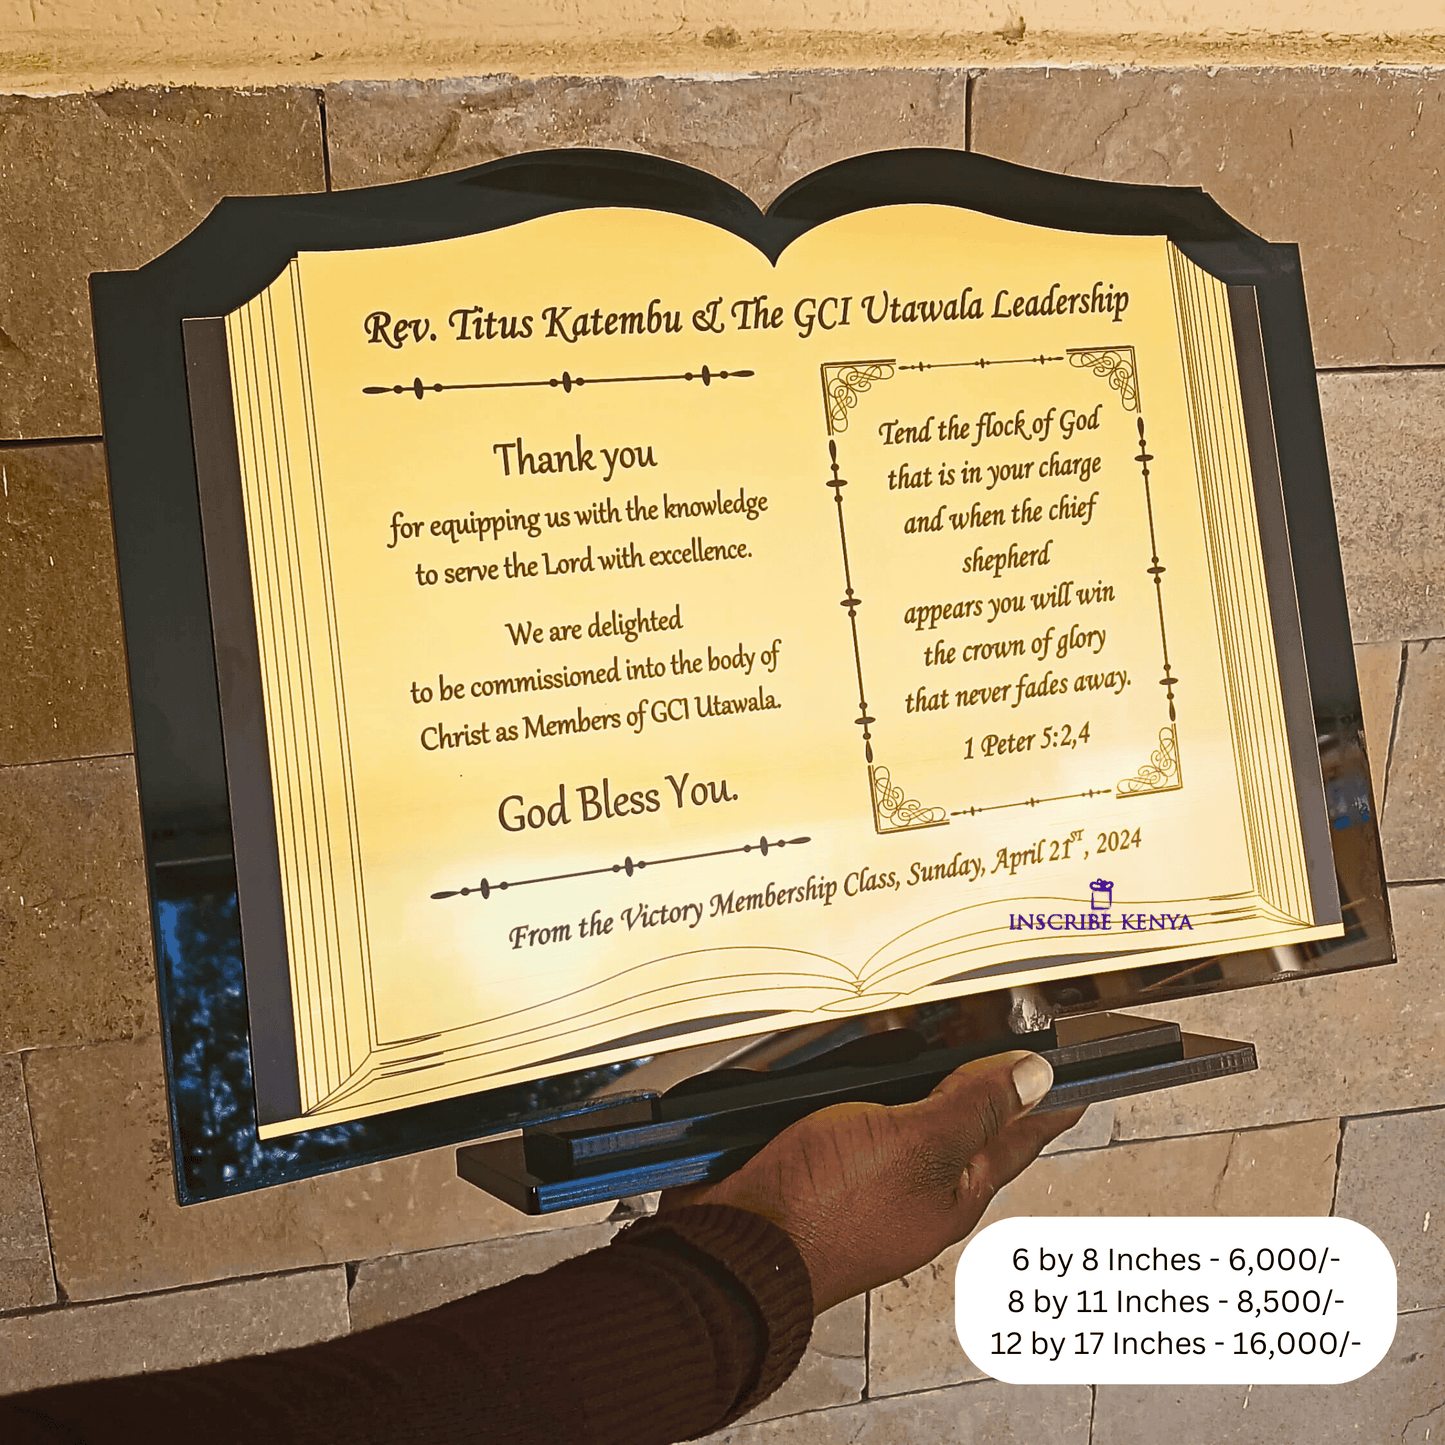 Rev. Titus Katembu & The GCI Utawala Leadership
Thank you
for equipping us with the knowledge
to serve the Lord with excellence.
We are delighted
to be commissioned into the body of
Christ as Members of GCI Utawala.
God Bless You.
Tend the flock of God
that is in your charge
and when the chief
shepherd
appears you will win
the crown of glory
that never fades away.
1 Peter 5:2,4
From the Victory Membership Class, Sunday, April 21ST, 2024
INSCRIBE KENYA
6 by 8 Inches - 6,000/-
8 by 11 Inches - 8,500/-
12 by 17 Inches - 16,000/-